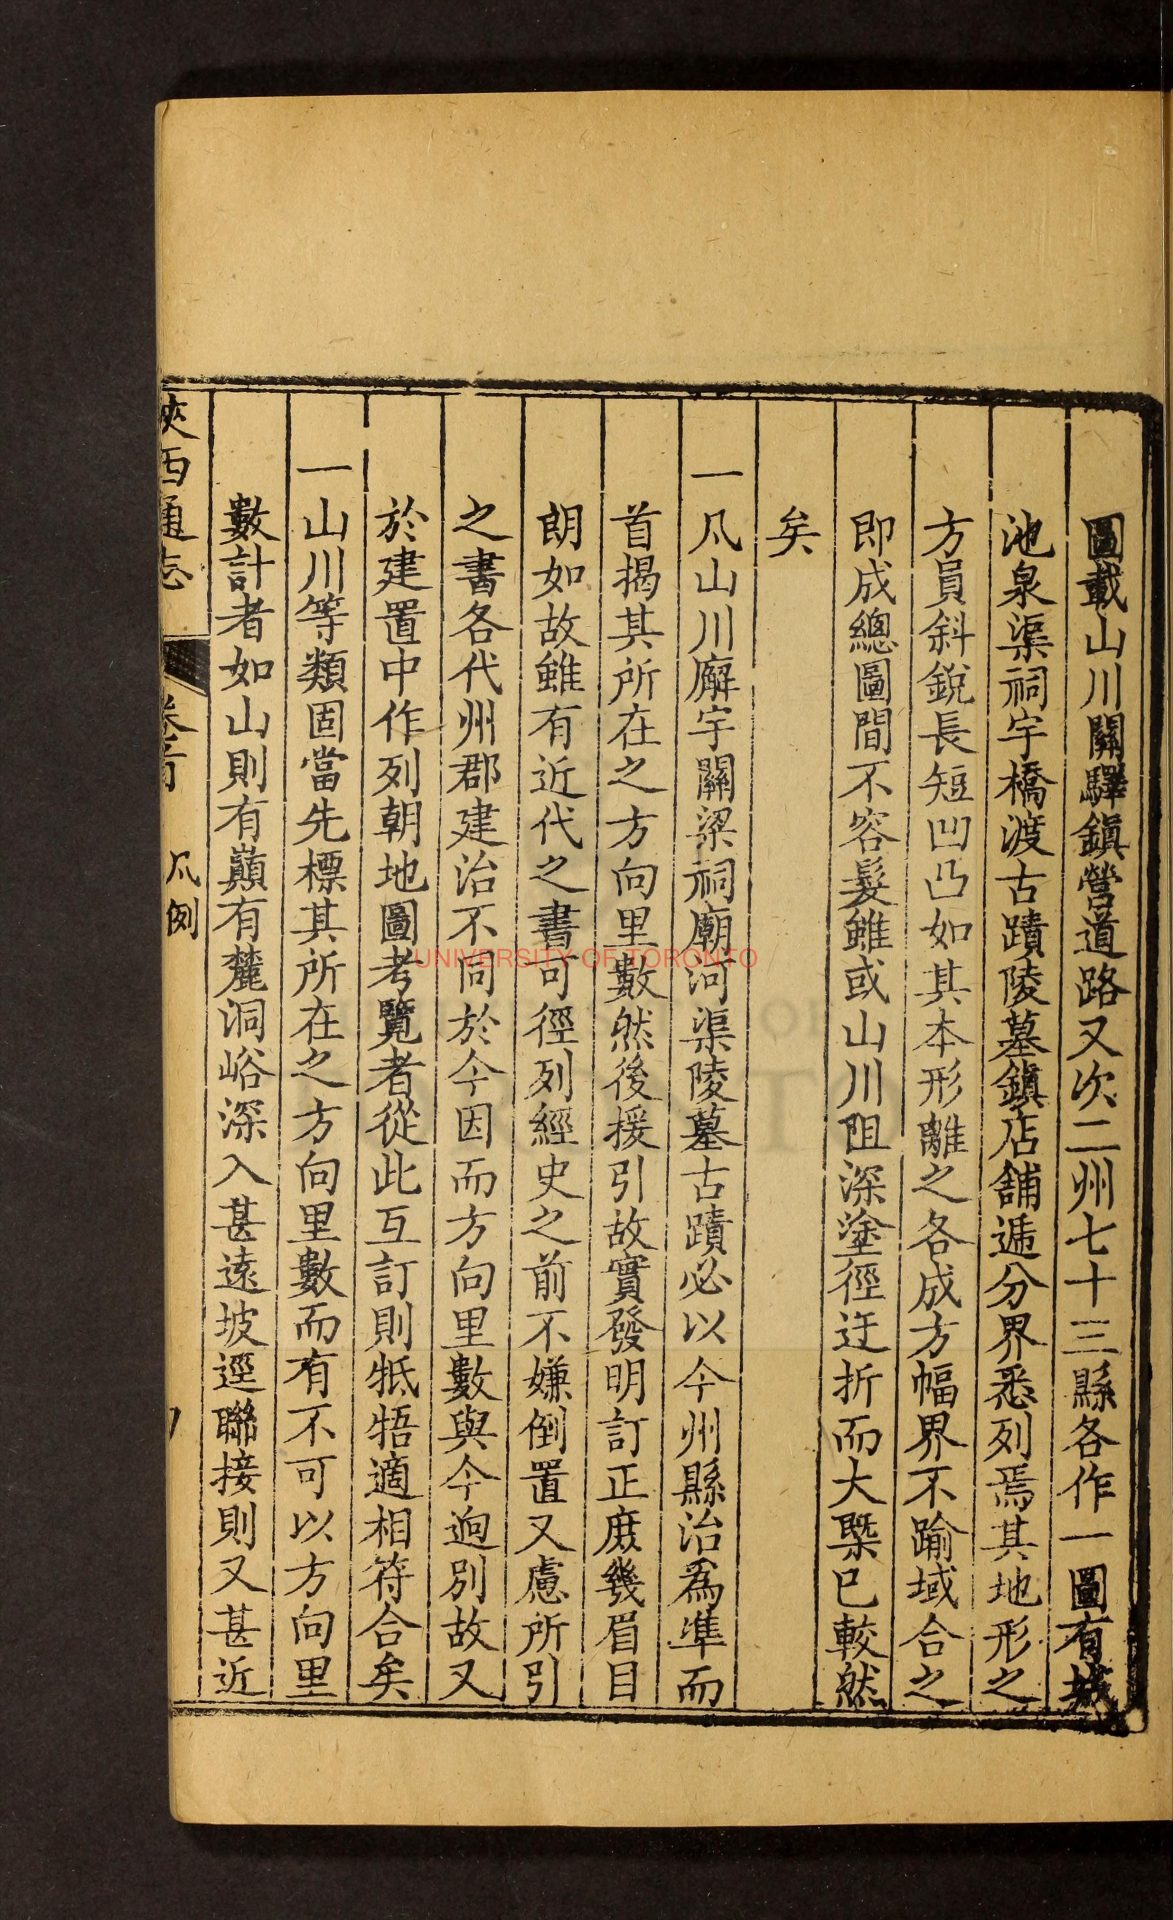 圖載山川關驛鎮營道路又次二州七十三縣各作一圖有城
池泉渠祠宇橋渡古蹟陵墓鎮店舖遞分界悉列焉其地形之
方員斜銳長短凹凸如其本形離之各成方幅界不踰域合之
即成總圖間不容髮雖或山川阻深塗徑迂折而大槩已較然
矣
一凡山川廨宇關梁祠廟河渠陵墓古蹟必以今州縣治為準而
首揭其所在之方向里數然後援引故實發明訂正庶幾眉目
朗如故雖有近代之書可徑列經史之前不嫌倒置又慮所引
之書各代州郡建治不同於今因而方向里數與今逈別故又
於建置中作列朝地圖考覽者從此互訂則牴牾適相符合矣
一山川等類固當先標其所在之方向里數而有不可以方向里
數計者如山則有巔有麓洞峪深入甚遠坡逕聯接則又甚近
陜西通志 卷首 凡例
UNIVERSITY OF TORONTO